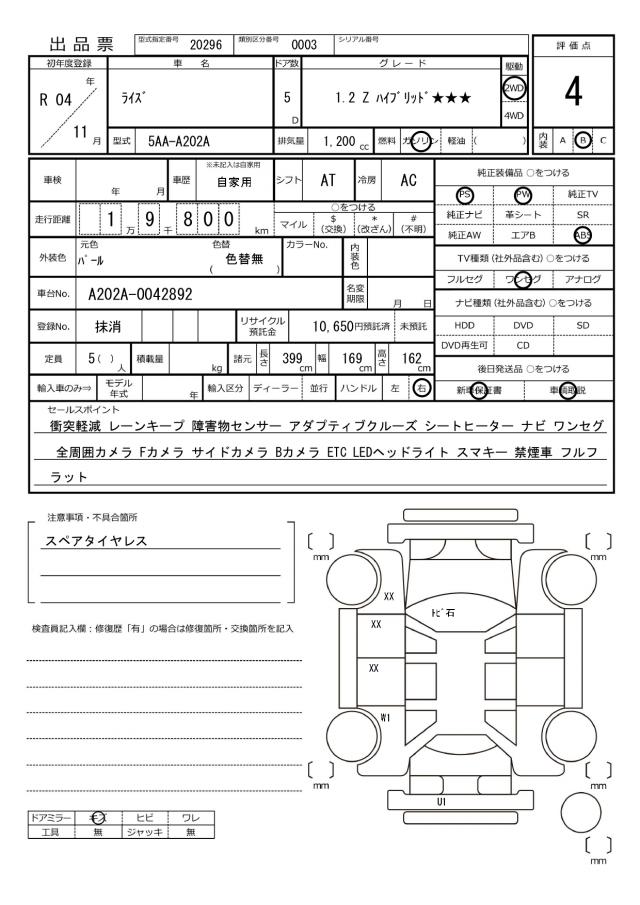 出品票
型式指定番号 20296 類別区分番号 0003 シリアル番号
評価点
4
初年度登録 車名 ドア数 グレード 駆動
R 04 年 11 月
ﾗｲｽﾞ
5 D
1.2 Z ﾊｲﾌﾞﾘｯﾄﾞ★★★
2WD
4WD
型式 5AA-A202A 排気量 1,200 cc 燃料 ガソリン 軽油 ( )
内装 A B C
車検 年 月 車歴 ※未記入は自家用 自家用 シフト AT 冷房 AC
純正装備品 ○をつける
PS PW 純正TV
純正ナビ 革シート SR
純正AW エアB ABS
走行距離 1 万 9 千 8 0 0 km
○をつける
マイル $(交換) *(改ざん) #(不明)
外装色 元色 ﾊﾟｰﾙ 色替 ( 色替無 ) カラーNo. 内装色
TV種類(社外品含む)○をつける
フルセグ ワンセグ アナログ
車台No. A202A-0042892 名変期限 月 日
ナビ種類(社外品含む)○をつける
HDD DVD SD
DVD再生可 CD
登録No. 抹消 リサイクル預託金 10,650円預託済 未預託
定員 5( )人 積載量 kg 諸元 長さ 399cm 幅 169cm 高さ 162cm
後日発送品 ○をつける
新車保証書 車輌取説
輸入車のみ⇒ モデル年式 年 輸入区分 ディーラー 並行 ハンドル 左 右
セールスポイント
衝突軽減 レーンキープ 障害物センサー アダプティブクルーズ シートヒーター ナビ ワンセグ
全周囲カメラ Fカメラ サイドカメラ Bカメラ ETC LEDヘッドライト スマキー 禁煙車 フルフ
ラット
注意事項・不具合箇所
スペアタイヤレス
検査員記入欄：修復歴「有」の場合は修復箇所・交換箇所を記入
mm
mm
XX
ﾄﾋﾞ石
XX
XX
W1
mm
mm
U1
mm
ドアミラー キズ ヒビ ワレ
工具 無 ジャッキ 無